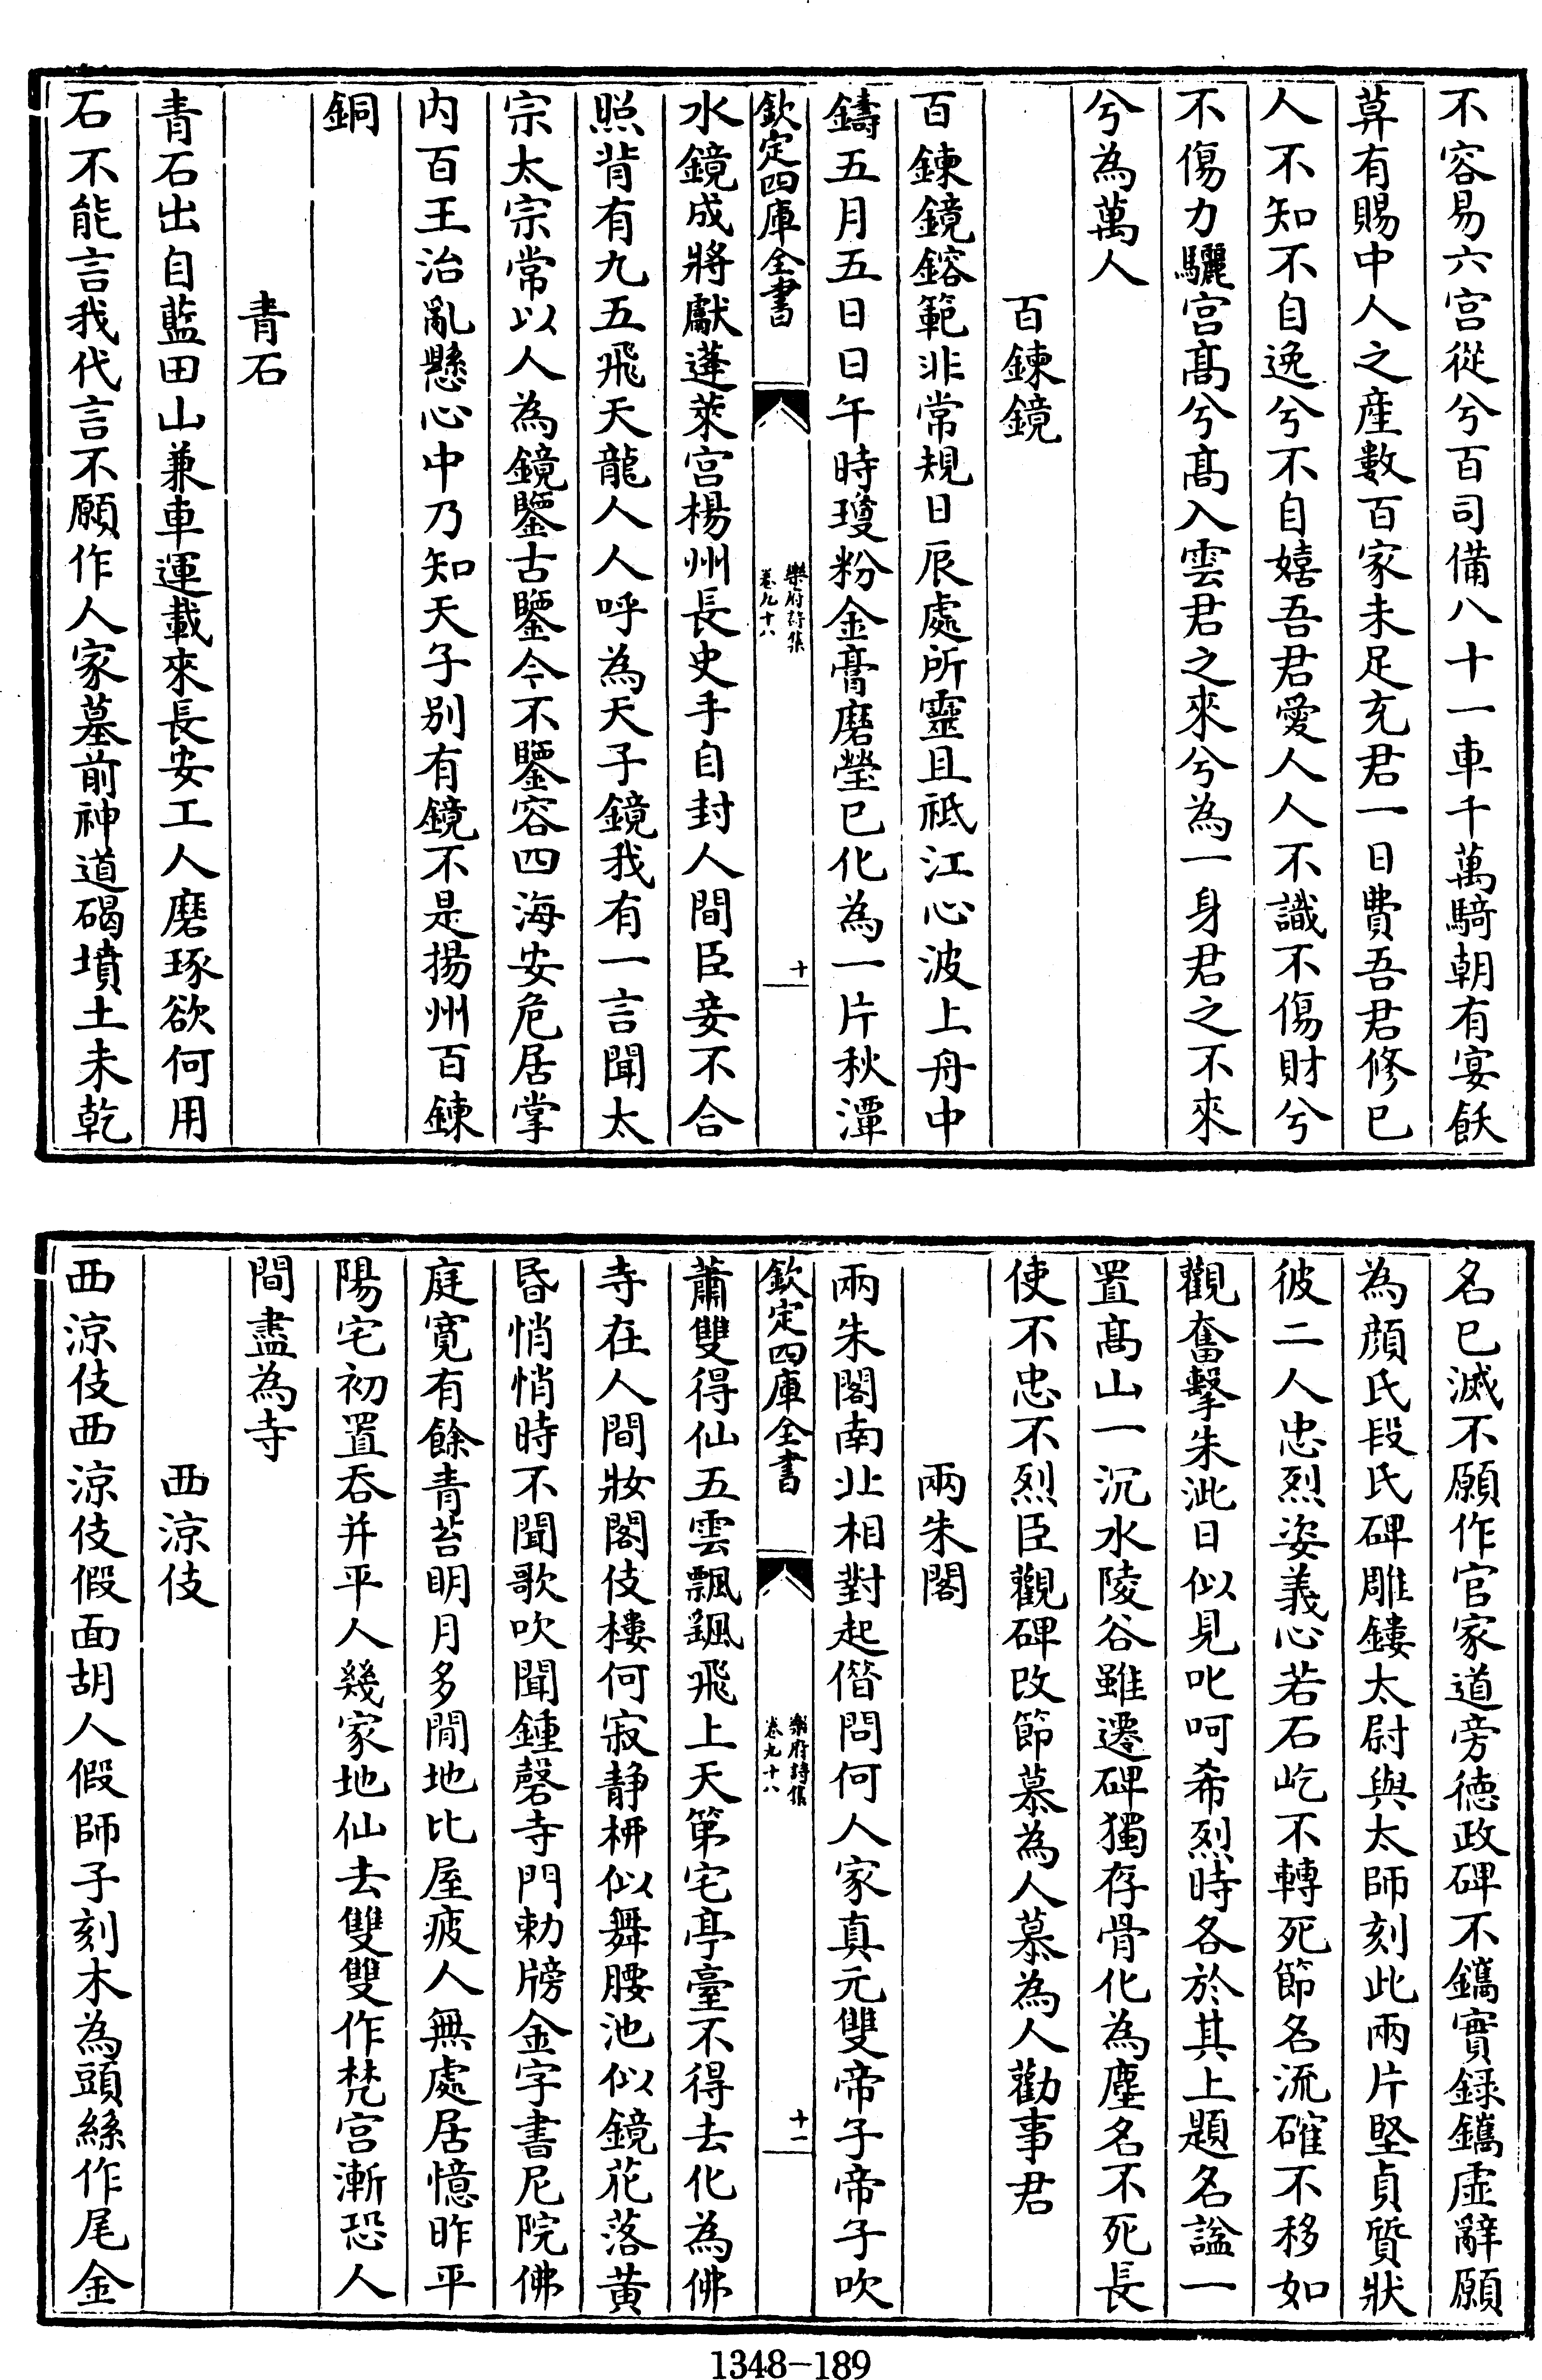 不容易六宫從兮百司備八十一車千萬騎朝有宴飫
暮有賜中人之産數百家未足充君一日費吾君修已
人不知不自逸兮不自嬉吾君愛人人不識不傷財兮
不傷力驪宫髙兮髙入雲君之來兮為一身君之不來
兮為萬人
百鍊鏡
百鍊鏡鎔範非常規日辰處所靈且祇江心波上舟中
鑄五月五日日午時瓊粉金膏磨瑩已化為一片秋潭
欽定四庫全書
樂府詩集
卷九十八
十
水鏡成將獻蓬萊宫楊州長史手自封人間臣妾不合
照背有九五飛天龍人人呼為天子鏡我有一言聞太
宗太宗常以人為鏡鑒古鑒今不鑒容四海安危居掌
内百王治亂懸心中乃知天子别有鏡不是揚州百鍊
銅
青石
青石出自藍田山兼車運載來長安工人磨琢欲何用
石不能言我代言不願作人家墓前神道碣墳土未乾
名已滅不願作官家道旁德政碑不鐫實録鐫虚辭願
為顔氏段氏碑雕鏤太尉與太師刻此兩片堅貞質狀
彼二人忠烈姿義心若石屹不轉死節名流確不移如
觀奮擊朱泚日似見叱呵希烈時各於其上題名諡一
置髙山一沉水陵谷雖遷碑獨存骨化為塵名不死長
使不忠不烈臣觀碑改節慕為人慕為人勸事君
兩朱閣
兩朱閣南北相對起借問何人家真元雙帝子帝子吹
欽定四庫全書
樂府詩集
卷九十八
十一
蕭雙得仙五雲飄颻飛上天第宅亭臺不得去化為佛
寺在人間妝閣伎樓何寂静栟似舞腰池似鏡花落黄
昏悄悄時不聞歌吹聞鍾磬寺門勅牓金字書尼院佛
庭寛有餘青苔明月多閒地比屋疲人無處居憶昨平
陽宅初置吞并平人幾家地仙去雙雙作梵宫漸恐人
間盡為寺
西涼伎
西涼伎西涼伎假面胡人假師子刻木為頭絲作尾金
1348-189